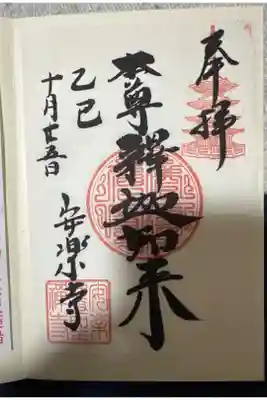 奉拝
本尊釋迦如来
乙巳
十月廿五日
安楽寺